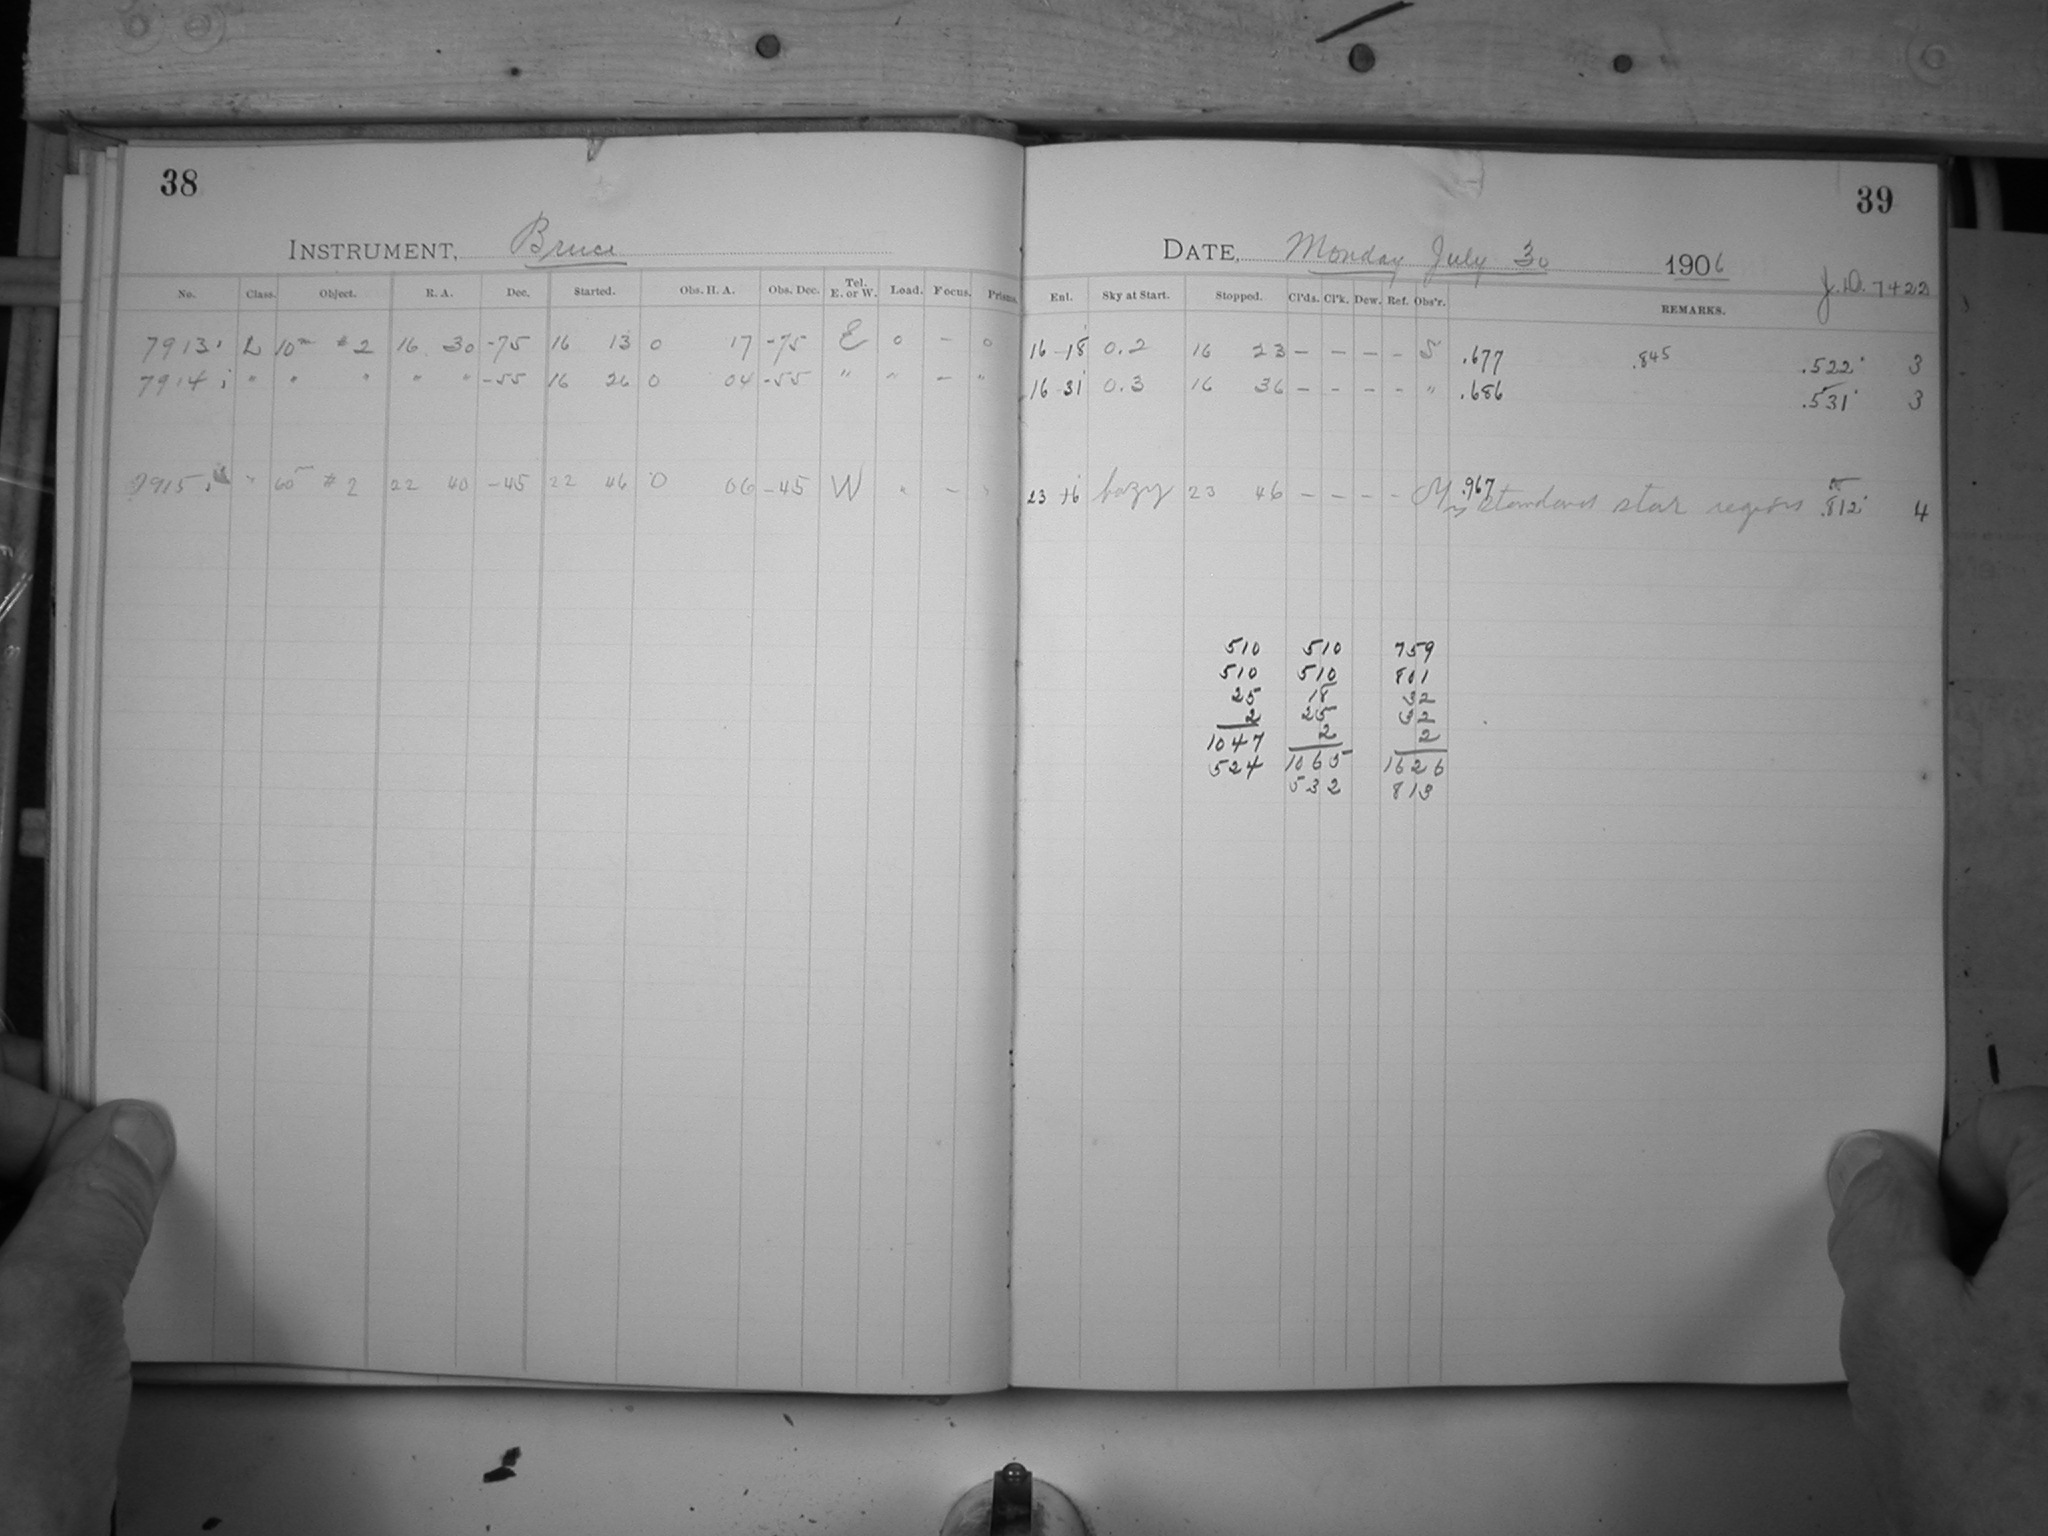 38
INSTRUMENT, Bruce
No. Class. Object. R. A. Dec. Started. Obs. H. A. Obs. Dec. Tel. E. or W. Load. Focus. Prisms.
7913 L 10m #2 16 30 -75 16 13 0 17 -75 E 0 - 0
7914 " " " " " -55 16 26 0 04 -55 " " - "
7915 " 60 #2 22 40 -45 22 46 0 06 -45 W " - "
39
DATE, Monday July 30 1906
J.D. 7422
Enl. Sky at Start. Stopped. Cl'ds. Cl'k. Dew. Ref. Obs'r. REMARKS.
16 18 0.2 16 23 - - - - S .677 .845 .522 3
16 31 0.3 16 36 - - - - " .686 .531 3
23 16 hazy 23 46 - - - - .967 standard star regions .812 4
510 510 759
510 510 801
25 18 32
2 25 32
1047 2 2
524 1065 1626
532 813